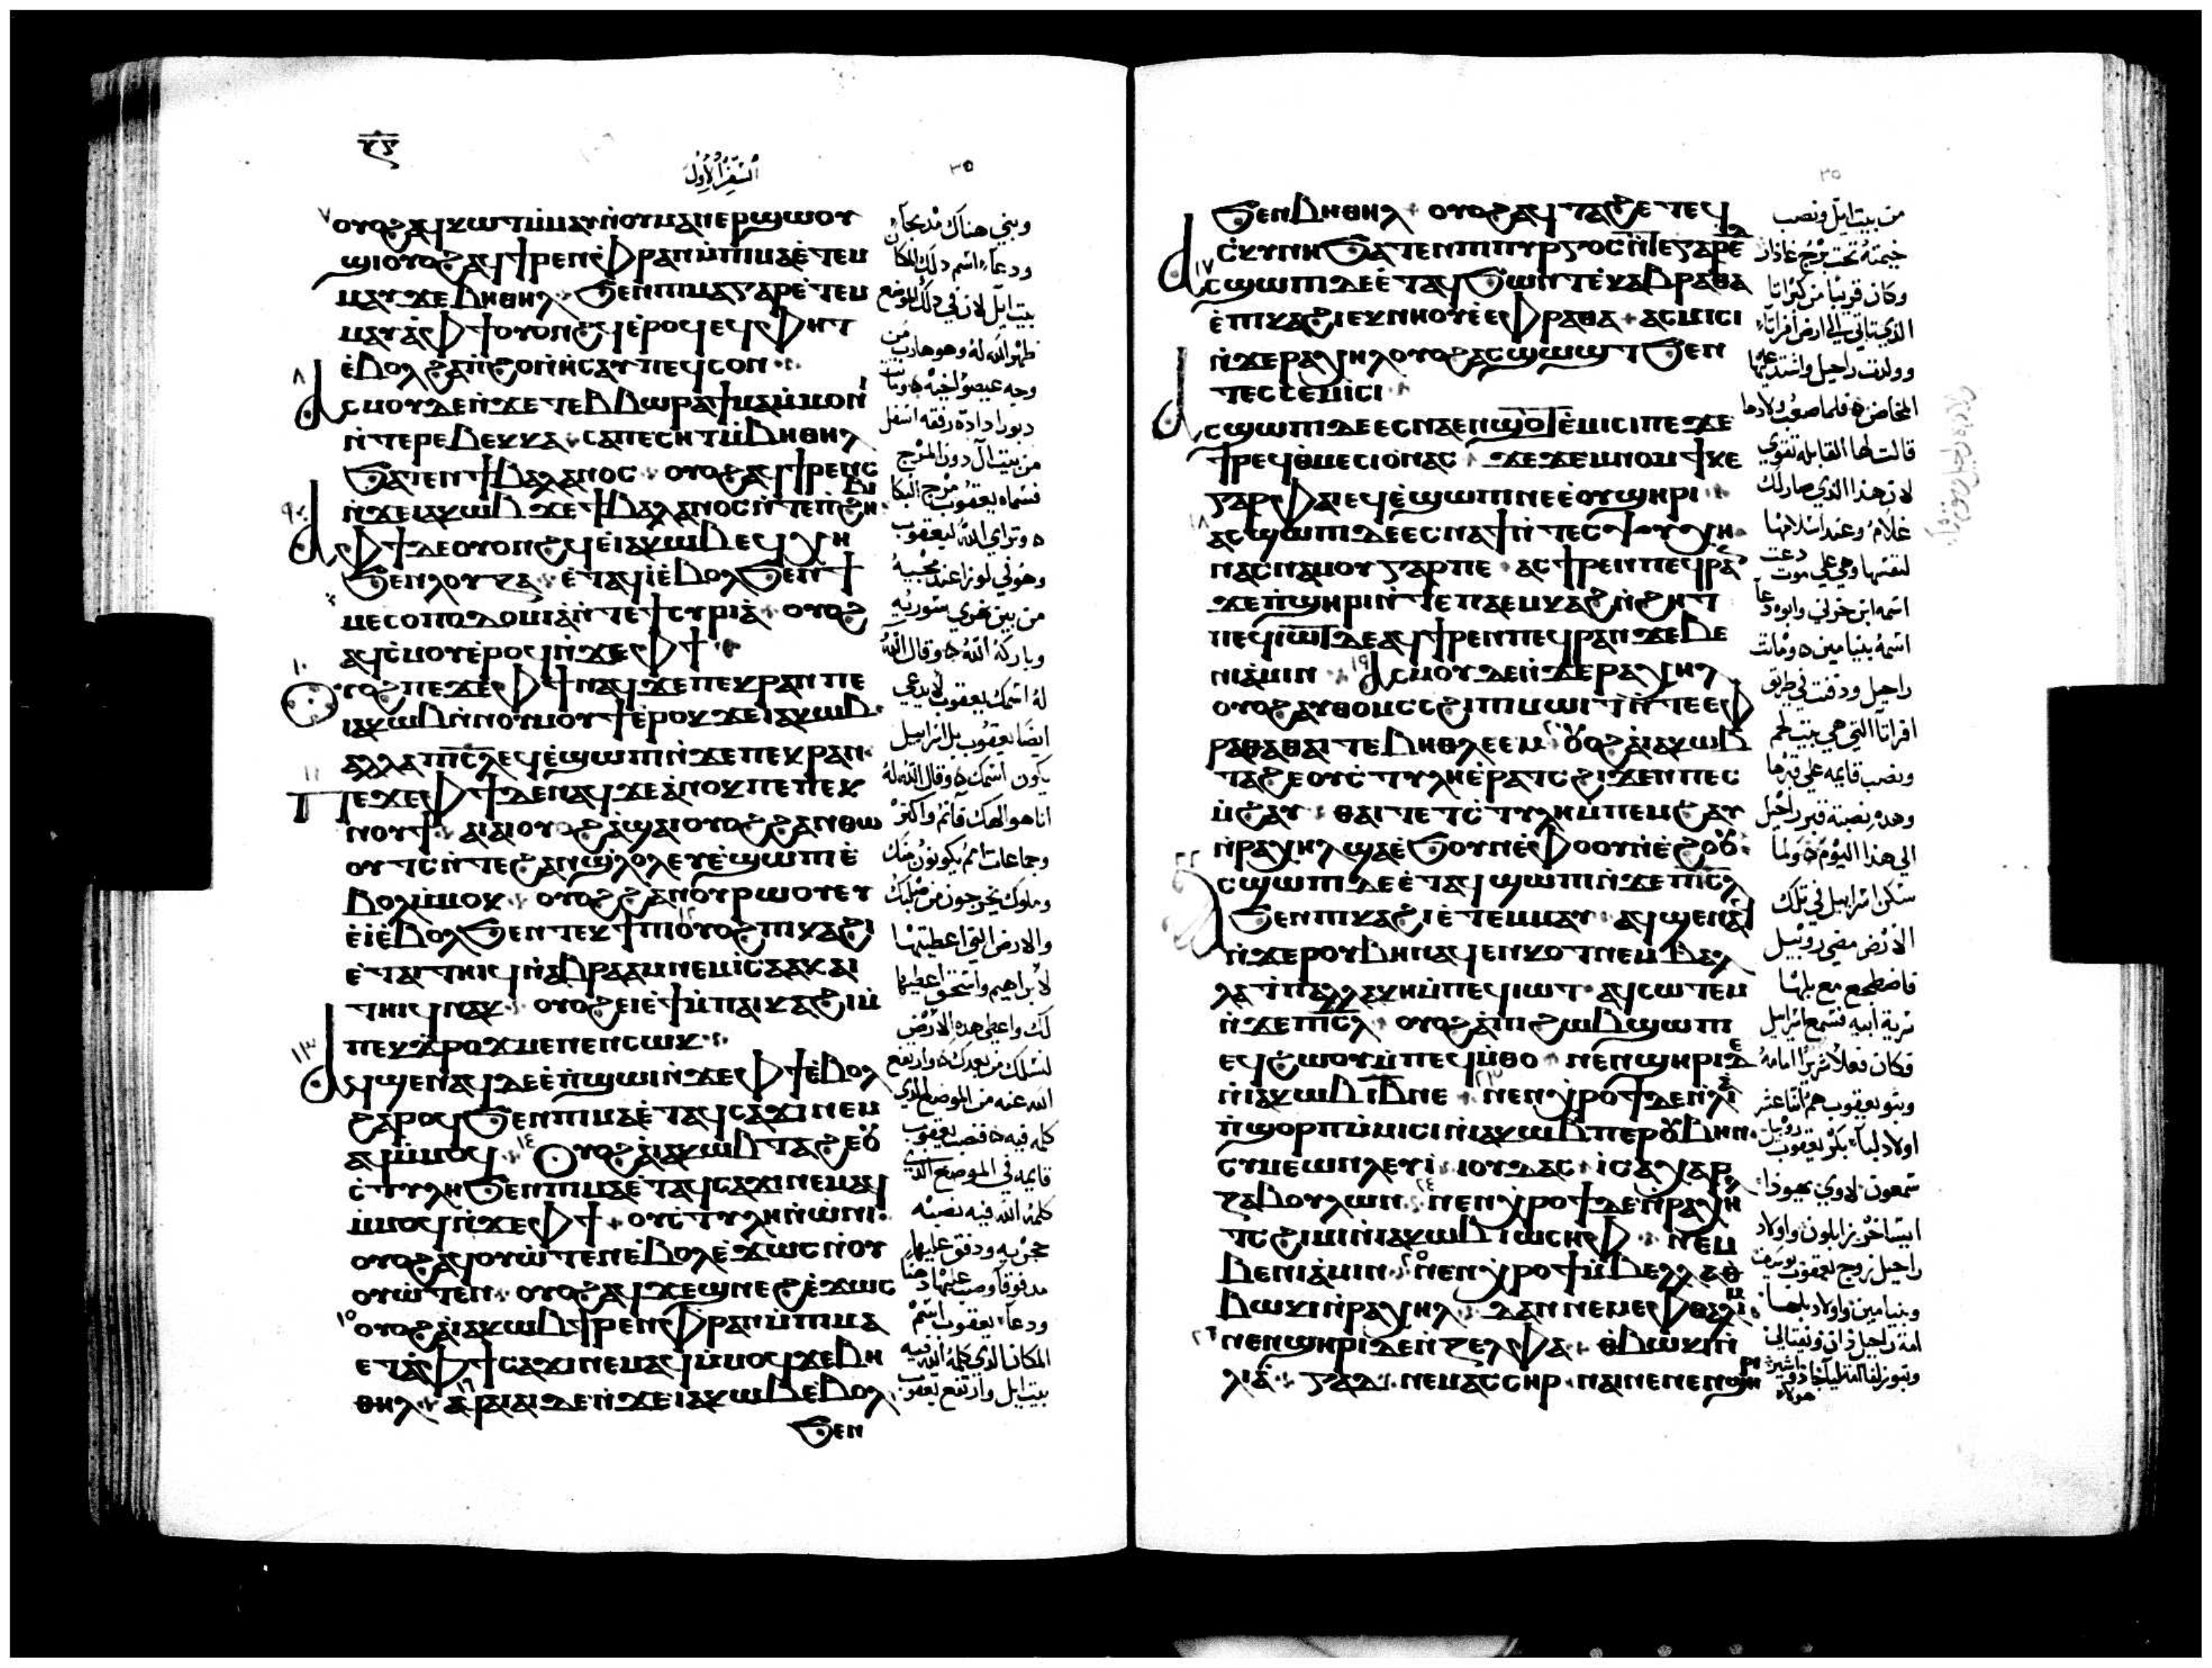 السفر الاول
ⲟⲩⲟϩ ⲁϥⲕⲱⲧ ⲙ̀ⲙⲁⲩ ⲛ̀ⲟⲩⲙⲁⲛⲉⲣϣⲱⲟⲩ
ϣⲓ ⲟⲩⲟϩ ⲁϥϯⲣⲉⲛ ⲫⲣⲁⲛ ⲙ̀ⲡⲓⲙⲁ ⲉ̀ⲧⲉⲙ
ⲙⲁⲩ ϫⲉ ⲃⲏⲑⲏⲗ ϧⲉⲛ ⲡⲓⲙⲁ ⲅⲁⲣ ⲉ̀ⲧⲉⲙ
ⲙⲁⲩ ⲁ̀ ⲫϯ ⲟⲩⲟⲛϩϥ ⲉ̀ⲣⲟϥ ⲉϥⲫⲏⲧ
ⲉ̀ⲃⲟⲗ ϩⲁ ⲡ̀ϩⲟ ⲛ̀ⲏⲥⲁⲩ ⲡⲉϥⲥⲟⲛ
ⲁⲥⲙⲟⲩ ⲇⲉ ⲛ̀ϫⲉ ⲧⲉⲃⲃⲱⲣⲁ ϯⲙⲁⲙ̀ⲙⲟⲛⲓ
ⲛ̀ⲧⲉ ⲣⲉⲃⲉⲕⲕⲁ ⲥⲁⲡⲉⲥⲏⲧ ⲙ̀ⲃⲏⲑⲏⲗ
ϧⲁⲧⲉⲛ ϯⲃⲁⲗⲁⲛⲟⲥ ⲟⲩⲟϩ ⲁϥϯⲣⲉⲛⲥ
ⲛ̀ϫⲉ ⲓⲁⲕⲱⲃ ϫⲉ ϯⲃⲁⲗⲁⲛⲟⲥ ⲛ̀ⲧⲉ ⲡ̀ϩⲏⲃⲓ
ⲁ ⲫϯ ⲇⲉ ⲟⲩⲟⲛϩϥ ⲉ̀ⲓⲁⲕⲱⲃ ⲉϥⲭⲏ
ϧⲉⲛ ⲗⲟⲩⲍⲁ ⲉ̀ⲧⲁϥⲓ̀ ⲉ̀ⲃⲟⲗ ϧⲉⲛ ϯ
ⲙⲉⲥⲟⲡⲟⲇⲟⲙⲓⲁ ⲛ̀ⲧⲉ ϯⲥⲩⲣⲓⲁ̀ ⲟⲩⲟϩ
ⲁϥⲥ̀ⲙⲟⲩ ⲉ̀ⲣⲟϥ ⲛ̀ϫⲉ ⲫϯ
ⲟⲩⲟϩ ⲡⲉϫⲉ ⲫϯ ⲛⲁϥ ϫⲉ ⲡⲉⲕⲣⲁⲛ ⲡⲉ
ⲓⲁⲕⲱⲃ ⲛ̀ⲛⲟⲩⲙⲟⲩϯ ⲉ̀ⲣⲟⲕ ϫⲉ ⲓⲁⲕⲱⲃ
ⲁⲗⲗⲁ ⲡⲓⲥ̅ⲗ̅ ⲉϥⲉ̀ϣⲱⲡⲓ ⲛ̀ϫⲉ ⲡⲉⲕⲣⲁⲛ
ⲡⲉϫⲉ ⲫϯ ⲇⲉ ⲛⲁϥ ϫⲉ ⲁ̀ⲛⲟⲕ ⲡⲉ ⲡⲉⲕ
ⲛⲟⲩϯ ⲁⲓⲁⲓ ⲟⲩⲟϩ ⲁ̀ϣⲁⲓ ⲟⲩⲟϩ ϩⲁⲛⲑⲱ
ⲟⲩⲧⲥ ⲛ̀ⲧⲉ ϩⲁⲛϣ̀ⲗⲟⲗ ⲉⲩⲉ̀ϣⲱⲡⲓ ⲉ̀
ⲃⲟⲗ ⲙ̀ⲙⲟⲕ ⲟⲩⲟϩ ϩⲁⲛⲟⲩⲣⲱⲟⲩ ⲉⲩ
ⲉ̀ⲓ̀ ⲉ̀ⲃⲟⲗ ϧⲉⲛ ⲧⲉⲕϯⲡⲓ ⲟⲩⲟϩ ⲡⲓⲕⲁϩⲓ
ⲉ̀ⲧⲁⲓⲧⲏⲓϥ ⲛ̀ⲁⲃⲣⲁⲁⲙ ⲛⲉⲙ ⲓⲥⲁⲁⲕ ⲁⲓ
ⲧⲏⲓϥ ⲛⲁⲕ ⲟⲩⲟϩ ⲉⲓⲉ̀ϯ ⲙ̀ⲡⲁⲓⲕⲁϩⲓ ⲙ̀
ⲡⲉⲕϫ̀ⲣⲟϫ ⲙⲉⲛⲉⲛⲥⲱⲕ
ⲁϥϣⲉⲛⲁϥ ⲇⲉ ⲉ̀ⲡ̀ϣⲱⲓ ⲛ̀ϫⲉ ⲫϯ ⲉ̀ⲃⲟⲗ
ϩⲁⲣⲟϥ ϧⲉⲛ ⲡⲓⲙⲁ ⲉ̀ⲧⲁϥⲥⲁϫⲓ ⲛⲉⲙ
ⲁϥ ⲙ̀ⲙⲟϥ ⲟⲩⲟϩ ⲁ̀ ⲓⲁⲕⲱⲃ ⲧⲁϩⲉ ⲟⲩ
ⲥ̀ⲧⲩⲗⲏ ϧⲉⲛ ⲡⲓⲙⲁ ⲉ̀ⲧⲁϥⲥⲁϫⲓ ⲛⲉⲙⲁϥ
ⲙ̀ⲙⲟϥ ⲛ̀ϫⲉ ⲫϯ ⲟⲩⲥ̀ⲧⲩⲗⲏ ⲛ̀ⲱ̀ⲛⲓ
ⲟⲩⲟϩ ⲁϥⲟⲩⲱ̀ⲧⲉⲛ ⲉ̀ⲃⲟⲗ ⲉ̀ϫⲱⲥ ⲛ̀ⲟⲩ
ⲟⲩⲱ̀ⲧⲉⲛ ⲟⲩⲟϩ ⲁϥϫⲉϣ ⲛⲉϩ ⲉ̀ϫⲱⲥ
ⲟⲩⲟϩ ⲁ̀ ⲓⲁⲕⲱⲃ ϯⲣⲉⲛ ⲫⲣⲁⲛ ⲙ̀ⲡⲓⲙⲁ
ⲉⲧⲁ ⲫϯ ⲥⲁϫⲓ ⲛⲉⲙⲁϥ ⲙ̀ⲙⲟϥ ϫⲉ ⲃⲏ
ⲑⲏⲗ ⲁϥⲁⲓ ⲇⲉ ⲛ̀ϫⲉ ⲓⲁⲕⲱⲃ ⲉⲃⲟⲗ
ϧⲉⲛ
وبني هناك مذبحا
ودعا اسم ذلك المكان
بيت ايل لان في ذلك الموضع
ظهر الله له وهو هارب من
وجه عيصو اخيه وماتت
دبورا دادة رفقه اسفل
من بيت ال دون المرج
فسماه يعقوب مرج البكا
وتراي الله ليعقوب
وهو في لوزا عند مجيه
من بين نهري سوريه
وباركه الله وقال الله
له اسمك يعقوب لا يدعي
ايضا يعقوب بل اسراييل
يكون اسمك وقال الله له
انا هو الهك فانم واكثر
وجماعات امم يكونون منك
وملوك يخرجون من صلبك
والارض التي اعطيتها
لابراهيم واسحق اعطيها
لك واعطي هذه الارض
لنسلك من بعدك وارتفع
الله عنه من الموضع الذي
كلمه فيه فنصب يعقوب
قايمه في الموضع الذي
كلمه الله فيه نصبه
حجريه ودفق عليها
مدفوقا وصب عليها دهنا
ودعا يعقوب اسم
المكان الذي كلمه الله فيه
بيت ايل وارتفع يعقوب
ϧⲉⲛ ⲃⲏⲑⲏⲗ ⲟⲩⲟϩ ⲁϥⲧⲁϩⲉ ⲧⲉϥ
ⲥ̀ⲕⲩⲛⲏ ϧⲁⲧⲉⲛ ⲡⲓⲡⲩⲣⲅⲟⲥ ⲛ̀ⲅⲁⲇⲉⲣ
ⲁⲥϣⲱⲡⲓ ⲇⲉ ⲉ̀ⲧⲁϥϧⲱⲛⲧ ⲉ̀ⲭⲁⲃⲣⲁⲑⲁ
ⲉ̀ⲡⲓⲕⲁϩⲓ ⲉⲕⲛⲏⲟⲩ ⲉ̀ⲉⲫⲣⲁⲑⲁ ⲁⲥⲙⲓⲥⲓ
ⲛ̀ϫⲉ ⲣⲁⲭⲏⲗ ⲟⲩⲟϩ ⲁⲥϣⲱϣⲧ ϧⲉⲛ
ⲡⲉⲥϭⲉⲙⲓⲥⲓ
ⲁⲥϣⲱⲡⲓ ⲇⲉ ⲉⲥⲛⲁⲉⲛϣⲟⲧ ⲉ̀ⲙⲓⲥⲓ ⲡⲉϫⲉ
ϯⲣⲉϥⲑⲙⲉⲥⲓⲟ ⲛⲁⲥ ϫⲉ ϫⲉⲙⲛⲟⲙϯ ϫⲉ
ⲅⲁⲣ ⲫⲁⲓ ⲉϥⲉ̀ϣⲱⲡⲓ ⲛⲉ ⲉ̀ⲟⲩϣⲏⲣⲓ
ⲁⲥϣⲱⲡⲓ ⲇⲉ ⲉⲥⲛⲁϯ ⲛ̀ⲧⲉⲥⲯⲩⲭⲏ
ⲛⲁⲥⲛⲁⲙⲟⲩ ⲅⲁⲣ ⲡⲉ ⲁⲥϯⲣⲉⲛ ⲡⲉϥⲣⲁⲛ
ϫⲉ ⲡ̀ϣⲏⲣⲓ ⲛ̀ⲧⲉ ⲡⲁⲉⲙⲕⲁϩ ⲛ̀ϩⲏⲧ
ⲡⲉϥⲓⲱⲧ ⲇⲉ ⲁϥϯⲣⲉⲛ ⲡⲉϥⲣⲁⲛ ϫⲉ ⲃⲉ
ⲛⲓⲁ̀ⲙⲓⲛ ⲁⲥⲙⲟⲩ ⲇⲉ ⲛ̀ϫⲉ ⲣⲁⲭⲏⲗ
ⲟⲩⲟϩ ⲁⲩⲑⲟⲙⲥⲥ ϩⲓ ⲡⲓⲙⲱⲓⲧ ⲛ̀ⲧⲉ ⲉⲫ
ⲣⲁⲑⲁ ⲑⲁⲓ ⲧⲉ ⲃⲏⲑⲗⲉⲉⲙ ⲟⲩⲟϩ ⲁ̀ ⲓⲁⲕⲱⲃ
ⲧⲁϩⲉ ⲟⲩⲥ̀ⲧⲩⲗⲏ ⲉ̀ⲣⲁⲧⲥ ϩⲓϫⲉⲛ ⲡⲉⲥ
ⲙ̀ϩⲁⲩ ⲑⲁⲓ ⲡⲉ ⲧⲥ̀ⲧⲩⲗⲏ ⲙ̀ⲡⲉⲙϩⲁⲩ
ⲛ̀ⲣⲁⲭⲏⲗ ϣⲁ ⲉ̀ϧⲟⲩⲛ ⲉ̀ⲫⲟⲟⲩ ⲛ̀ⲉ̀ϩⲟⲟⲩ
ⲁⲥϣⲱⲡⲓ ⲇⲉ ⲉ̀ⲧⲁϥϣⲱⲡⲓ ⲛ̀ϫⲉ ⲡⲓⲥ̅ⲗ̅
ϧⲉⲛ ⲡⲓⲕⲁϩⲓ ⲉ̀ⲧⲉⲙⲙⲁⲩ ⲁϥϣⲉⲛⲁϥ
ⲛ̀ϫⲉ ⲣⲟⲩⲃⲏⲛ ⲁϥⲉⲛⲕⲟⲧ ⲛⲉⲙ ⲃⲁⲗ
ⲗⲁ ϯⲡⲁⲗⲗⲁⲕⲏ ⲙ̀ⲡⲉϥⲓⲱⲧ ⲁϥⲥⲱⲧⲉⲙ
ⲛ̀ϫⲉ ⲡⲓⲥ̅ⲗ̅ ⲟⲩⲟϩ ⲁ̀ ⲡⲓϩⲱⲃ ϣⲱⲡⲓ
ⲉϥϩⲱⲟⲩ ⲙ̀ⲡⲉϥⲙ̀ⲑⲟ ⲛⲉⲛϣⲏⲣⲓ ⲇⲉ
ⲛ̀ⲓⲁⲕⲱⲃ ⲓ̅ⲃ̅ ⲛⲉ ⲛⲉⲛⲭⲣⲟϯ ⲇⲉ ⲛ̀ⲗⲓⲁ̀
ⲡ̀ϣⲟⲣⲡ ⲙ̀ⲙⲓⲥⲓ ⲛ̀ⲓⲁⲕⲱⲃ ⲡⲉ ⲣⲟⲩⲃⲏⲛ
ⲥⲩⲙⲉⲱⲛ ⲗⲉⲩⲓ̀ ⲓⲟⲩⲇⲁⲥ ⲓⲥⲁⲭⲁⲣ
ⲍⲁⲃⲟⲩⲗⲱⲛ ⲛⲉⲛⲭⲣⲟϯ ⲇⲉ ⲛ̀ⲣⲁⲭⲏⲗ
ⲧⲥϩⲓⲙⲓ ⲛ̀ⲓⲁⲕⲱⲃ ⲓⲱⲥⲏⲫ ⲛⲉⲙ
ⲃⲉⲛⲓⲁ̀ⲙⲓⲛ ⲛⲉⲛⲭⲣⲟϯ ⲙ̀ⲃⲉⲗⲗⲁ ⲑ
ⲃⲱⲕⲓ ⲛ̀ⲣⲁⲭⲏⲗ ⲇⲁⲛ ⲛⲉⲙ ⲉⲫⲑⲁⲗⲓⲙ
ⲛⲉⲛϣⲏⲣⲓ ⲇⲉ ⲛ̀ⲍⲉⲗⲫⲁ ⲑⲃⲱⲕⲓ ⲛ̀
ⲗⲓⲁ̀ ⲅⲁⲇ ⲛⲉⲙ ⲁⲥⲥⲏⲣ ⲛⲁⲓ ⲛⲉ ⲛⲉⲛϣⲏⲣⲓ
من بيت ايل ونصب
خيمته تحت برج غادار
وكان قريبا من كبراتا
الذي تاتي الي ارض افراتا
وولدت راحيل واشتد عليها
المخاض فلما صعب ولادها
قالت لها القابله تقوي
لان هذا الذي صار لك
غلام وعند اسلامها
لنفسها وهي علي موت دعت
اسمه ابن حزني وابوه دعا
اسمه بنيامين وماتت
راحيل ودفنت في طريق
افراتا التي هي بيت لحم
ونصب قايمه علي قبرها
وهذه نصبة قبر راحيل
الي هذا اليوم ولما
سكن اسراييل في تلك
الارض مضي روبيل
فاضطجع مع بلها
سرية ابيه فسمع اسراييل
فكان فعلا شريرا امامه
وبنو يعقوب هم اثنا عشر
اولاد ليا بكر يعقوب روبيل
شمعون لاوي يهودا
ايساخر زابلون واولاد
راحيل زوج يعقوب يوسف
وبنيامين واولاد بلها
امة راحيل دان ونفتالي